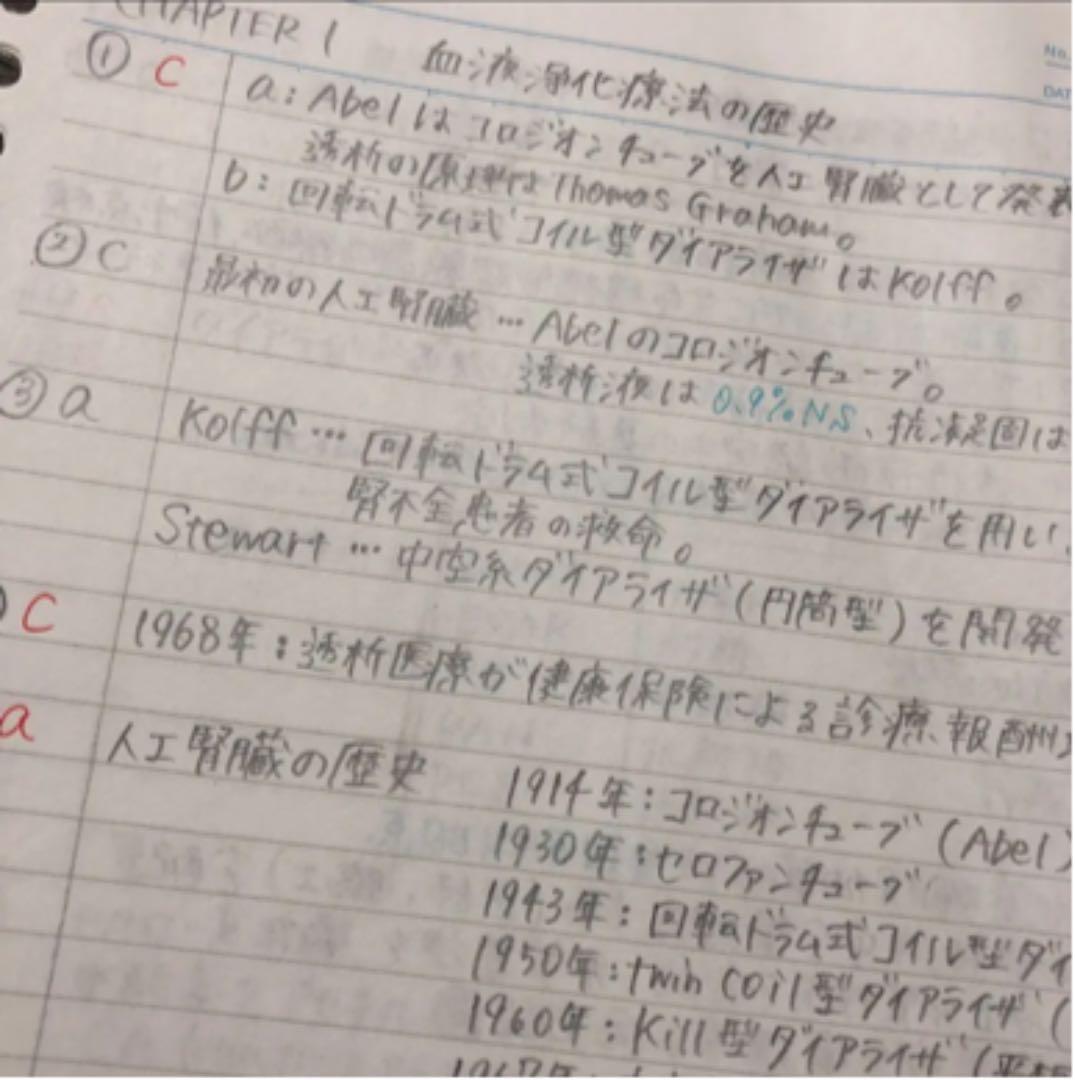 CHAPTER 1 血液浄化療法の歴史
No.
DAT
① C a: Abelはコロジオンチューブを人工腎臓として発表
透析の原理はThomas Graham。
b: 回転ドラム式コイル型ダイアライザはKolff。
② C 最初の人工腎臓 … Abelのコロジオンチューブ。
透析液は0.9%NS、抗凝固は
③ a Kolff … 回転ドラム式コイル型ダイアライザを用い、
腎不全患者の救命。
Stewart … 中空糸ダイアライザ(円筒型)を開発
C 1968年:透析医療が健康保険による診療報酬
a 人工腎臓の歴史 1914年:コロジオンチューブ(Abel)
1930年:セロファンチューブ
1943年:回転ドラム式コイル型ダイ
1950年:twin coil型ダイアライザ(
1960年:Kill型ダイアライザ(平板
1967年: